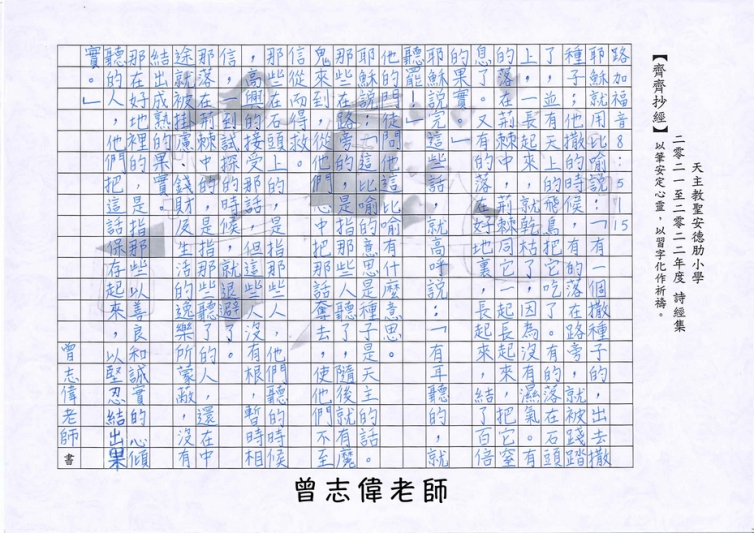 天主教聖安德肋小學
二零二一至二零二二年度 詩經集
【齊齊抄經】以筆安定心靈，以習字化作祈禱。
路加福音8:5-15
耶穌就用比喻說：「有一個撒種子的，出去撒
種子；他撒的時候，有的落在路旁，就被踐踏
了，並有天上的飛鳥把它吃了。有的落在石頭
上，一長起來，就乾枯了，因為沒有濕氣。有
的落在荊棘中，荊棘同它一起長起來，把它窒
息了。又有的落在好地裏，長起來，結了百倍
的果實。」
耶穌說完這些話，就高呼說：「有耳聽的，就
聽罷！」
他的門徒問他這比喻有什麼意思。
耶穌說：「這比喻的意思是：種子是天主的話。
那些在路旁的，是指那些人聽了，隨後就有魔
鬼來到，從他們心中把那話奪去，使他們不至
信從而得救。
那些在石頭上的，是指那些人，他們聽的時候
，高興的接受那話，但這些人沒有根，暫時相
信，一到試探的時候，就退避了。
那落在荊棘中的，是指那些聽了的人，還在中
途就被掛慮、錢財及生活的逸樂所蒙蔽，沒有
結出成熟的果實。
那在好地裡的，是指那些以善良和誠實的心傾
聽的人，他們把這話保存起來，以堅忍結出果
實。」
曾志偉老師 書
曾志偉老師